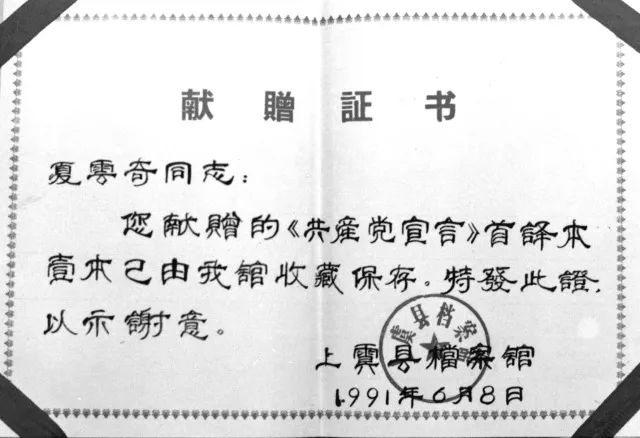 献赠证书
夏雲奇同志：
您献赠的《共產党宣言》首譯本
壹本己由我舘收藏保存。特發此證，
以示谢意。
上虞县檔案舘
1991年6月8日
虞县档案馆